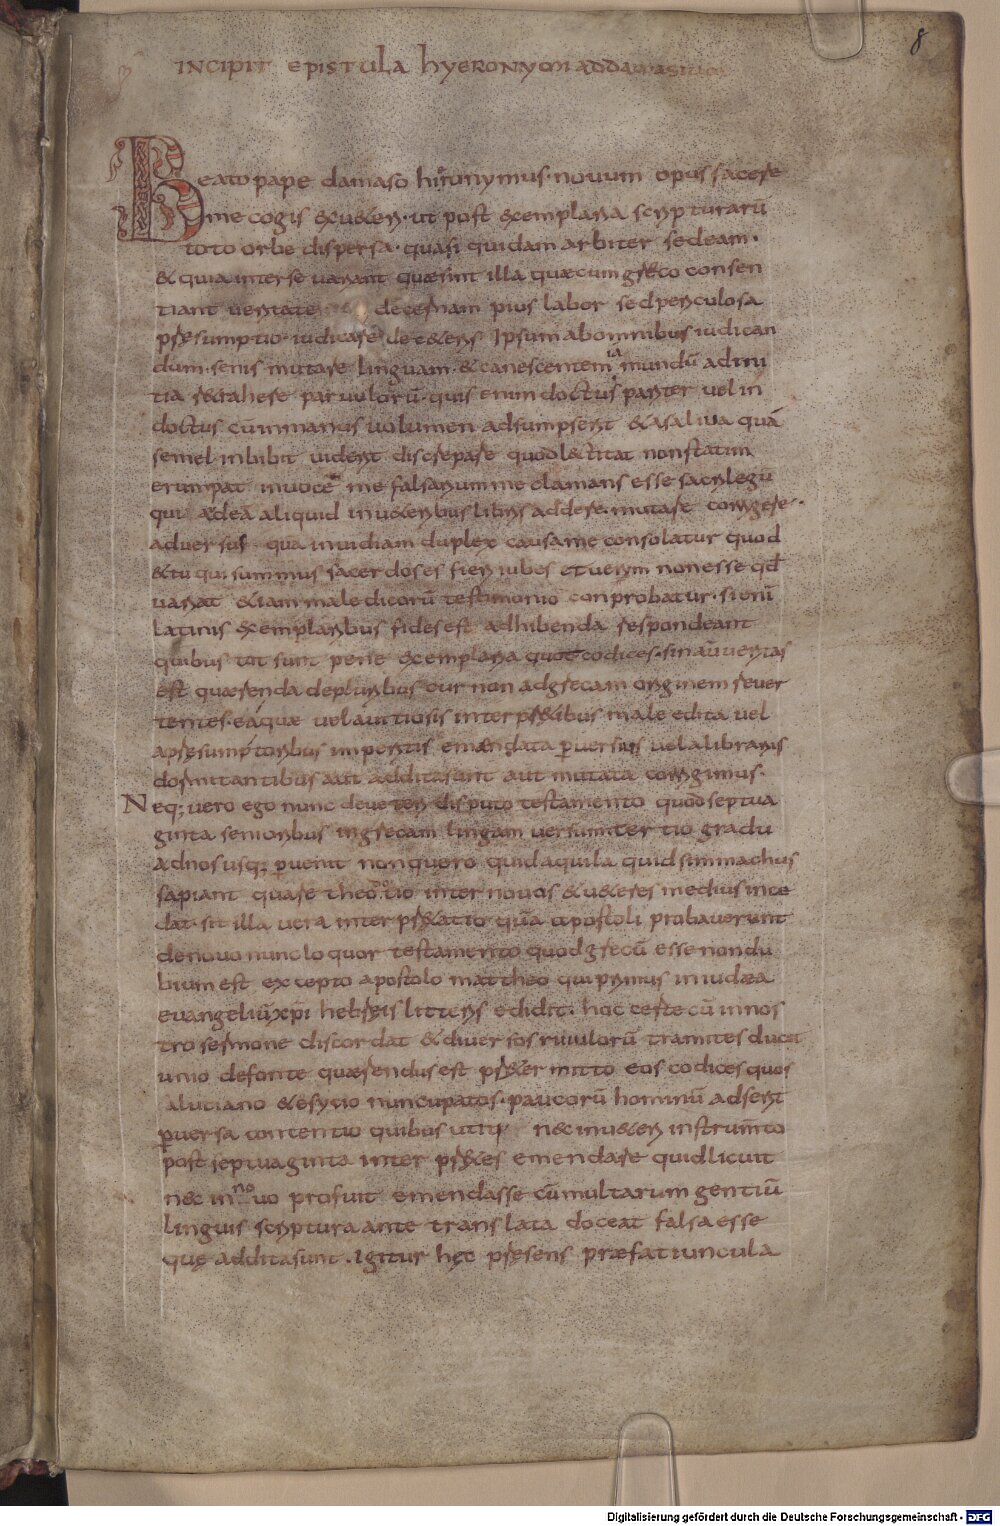 8
INCIPIT EPISTULA hYERONYMI AD DAMASIUM
Beato pape damaso hironymus. novum opus facere
me cogis ex veteri. ut post exemplaria scripturarū
toto orbe dispersa. quasi quidam arbiter sedeam.
& quia inter se variant quæ sint illa quæ cum greco consen
tiant veritate decernam pius labor sed periculosa
presumptio. iudicare de ceteris Ipsum ab omnibus iudican
dum. senis mutare linguam. & canescentem iā mundū ad ini
tia retrahere parvulorū. quis enim doctus pariter vel in
doctus cū in manus volumen adsumpserit & a saliva quā
semel inbibit viderit discrepare quod lectitat non statim
erumpat in voce me falsarium me clamans esse sacrilegū
qui adeā aliquid in veteribus libris addere. mutare corrigere.
adversus qua invidiam duplex causa me consolatur quod
& tu qui summus sacerdos es fieri iubes et verum non esse qđ
variat etiam maledicorū testimonio conprobatur. si enī
latinis exemplaribus fides est adhibenda respondeant
quibus tot sunt pene exemplaria quot codices. sin aū veritas
est quærenda de pluribus cur non ad grecam originem rever
tentes. ea quæ vel a vitiosis interpretibus male edita vel
a presumptoribus imperitis emendata perversius vel a librariis
dormitantibus aut addita sunt aut mutata corrigimus.
Neq; vero ego nunc de veteri disputo testamento quod septua
ginta senioribus in grecam lingam versum tertio gradu
ad nos usq; pervenit non quero quid aquila quid simmachus
sapiant quare theodotio inter novos & veteres medius ince
dat. sit illa vera interpretatio quā apostoli probaverunt
de novo nunc loquor testamento quod grecū esse non du
bium est excepto apostolo mattheo qui primus in iudæa
evangeliū xp̄i hebreis litteris edidit. hoc certe cū in nos
tro sermone discordat & diversos rivulorū tramites ducit
uno de fonte quærendus est pretermitto eos codices quos
a luciano & esycio nuncupatos. paucorū hominū adserit
perversa contentio quibus utiq; nec in veteri instrumto
post septuaginta interpretes emendare quid licuit
nec in novo profuit emendasse cū multarum gentiū
linguis scriptura ante translata doceat falsa esse
quę addita sunt. Igitur hęc presens præfatiuncula
Digitalisierung gefördert durch die Deutsche Forschungsgemeinschaft - DFG